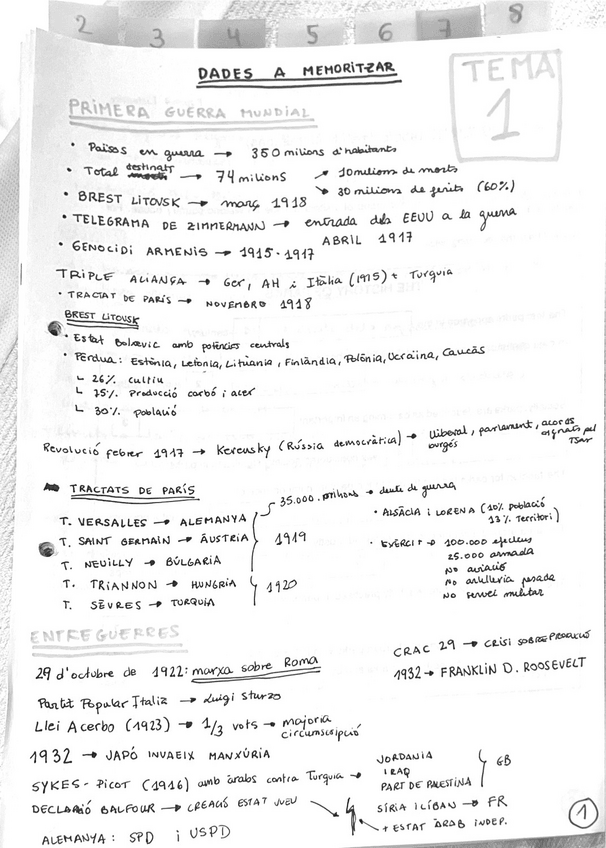 2 3 4 5 6 7 8
DADES A MEMORITZAR
TEMA
1
PRIMERA GUERRA MUNDIAL
• Països en guerra → 350 milions d'habitants
• Total destinatt → 74 milions → 10 milions de morts
→ 30 milions de ferits (60%)
• BREST LITOVSK → març 1918
• TELEGRAMA DE ZIMMERMANN → entrada dels EEUU a la guerra
ABRIL 1917
• GENOCIDI ARMENIS → 1915-1917
TRIPLE ALIANÇA → Ger, AH i Itàlia (1915) + Turquia
• TRACTAT DE PARÍS → NOVEMBRE 1918
BREST LITOVSK
• Estat Bolxevic amb potències centrals
• Pèrdua: Estònia, Letonia, Lituania, Finlàndia, Polònia, Ucraïna, Caucàs
↳ 26% cultiu
↳ 75% producció carbó i acer
↳ 30% població
Revolució febrer 1917 → Kerensky (Rússia democràtica) → lliberal, parlament, acords
burgès signats pel
Tsar
→ TRACTATS DE PARÍS
35.000 milions → deute de guerra
T. VERSALLES → ALEMANYA
T. SAINT GERMAIN → ÀUSTRIA
1919
T. NEUILLY → BÚLGARIA
T. TRIANNON → HUNGRIA
1920
T. SÈVRES → TURQUIA
• ALSÀCIA i LORENA (10% població
13% territori)
• EXÈRCIT → 100.000 efectius
25.000 armada
No aviació
No artilleria pesada
No servei militar
ENTREGUERRES
29 d'octubre de 1922: marxa sobre Roma
CRAC 29 → CRISI SOBREPRODUCCIÓ
1932 → FRANKLIN D. ROOSEVELT
Partit Popular Italià → Luigi Sturzo
Llei Acerbo (1923) → 1/3 vots → majoria
circumscripció
1932 → JAPÓ INVAEIX MANXÚRIA
SYKES-PICOT (1916) amb àrabs contra Turquia →
JORDANIA
IRAQ
PART DE PALESTINA
GB
DECLARACIÓ BALFOUR → CREACIÓ ESTAT JUEU
SÍRIA I LÍBAN → FR
+ ESTAT ÀRAB INDEP.
ALEMANYA: SPD i USPD
1